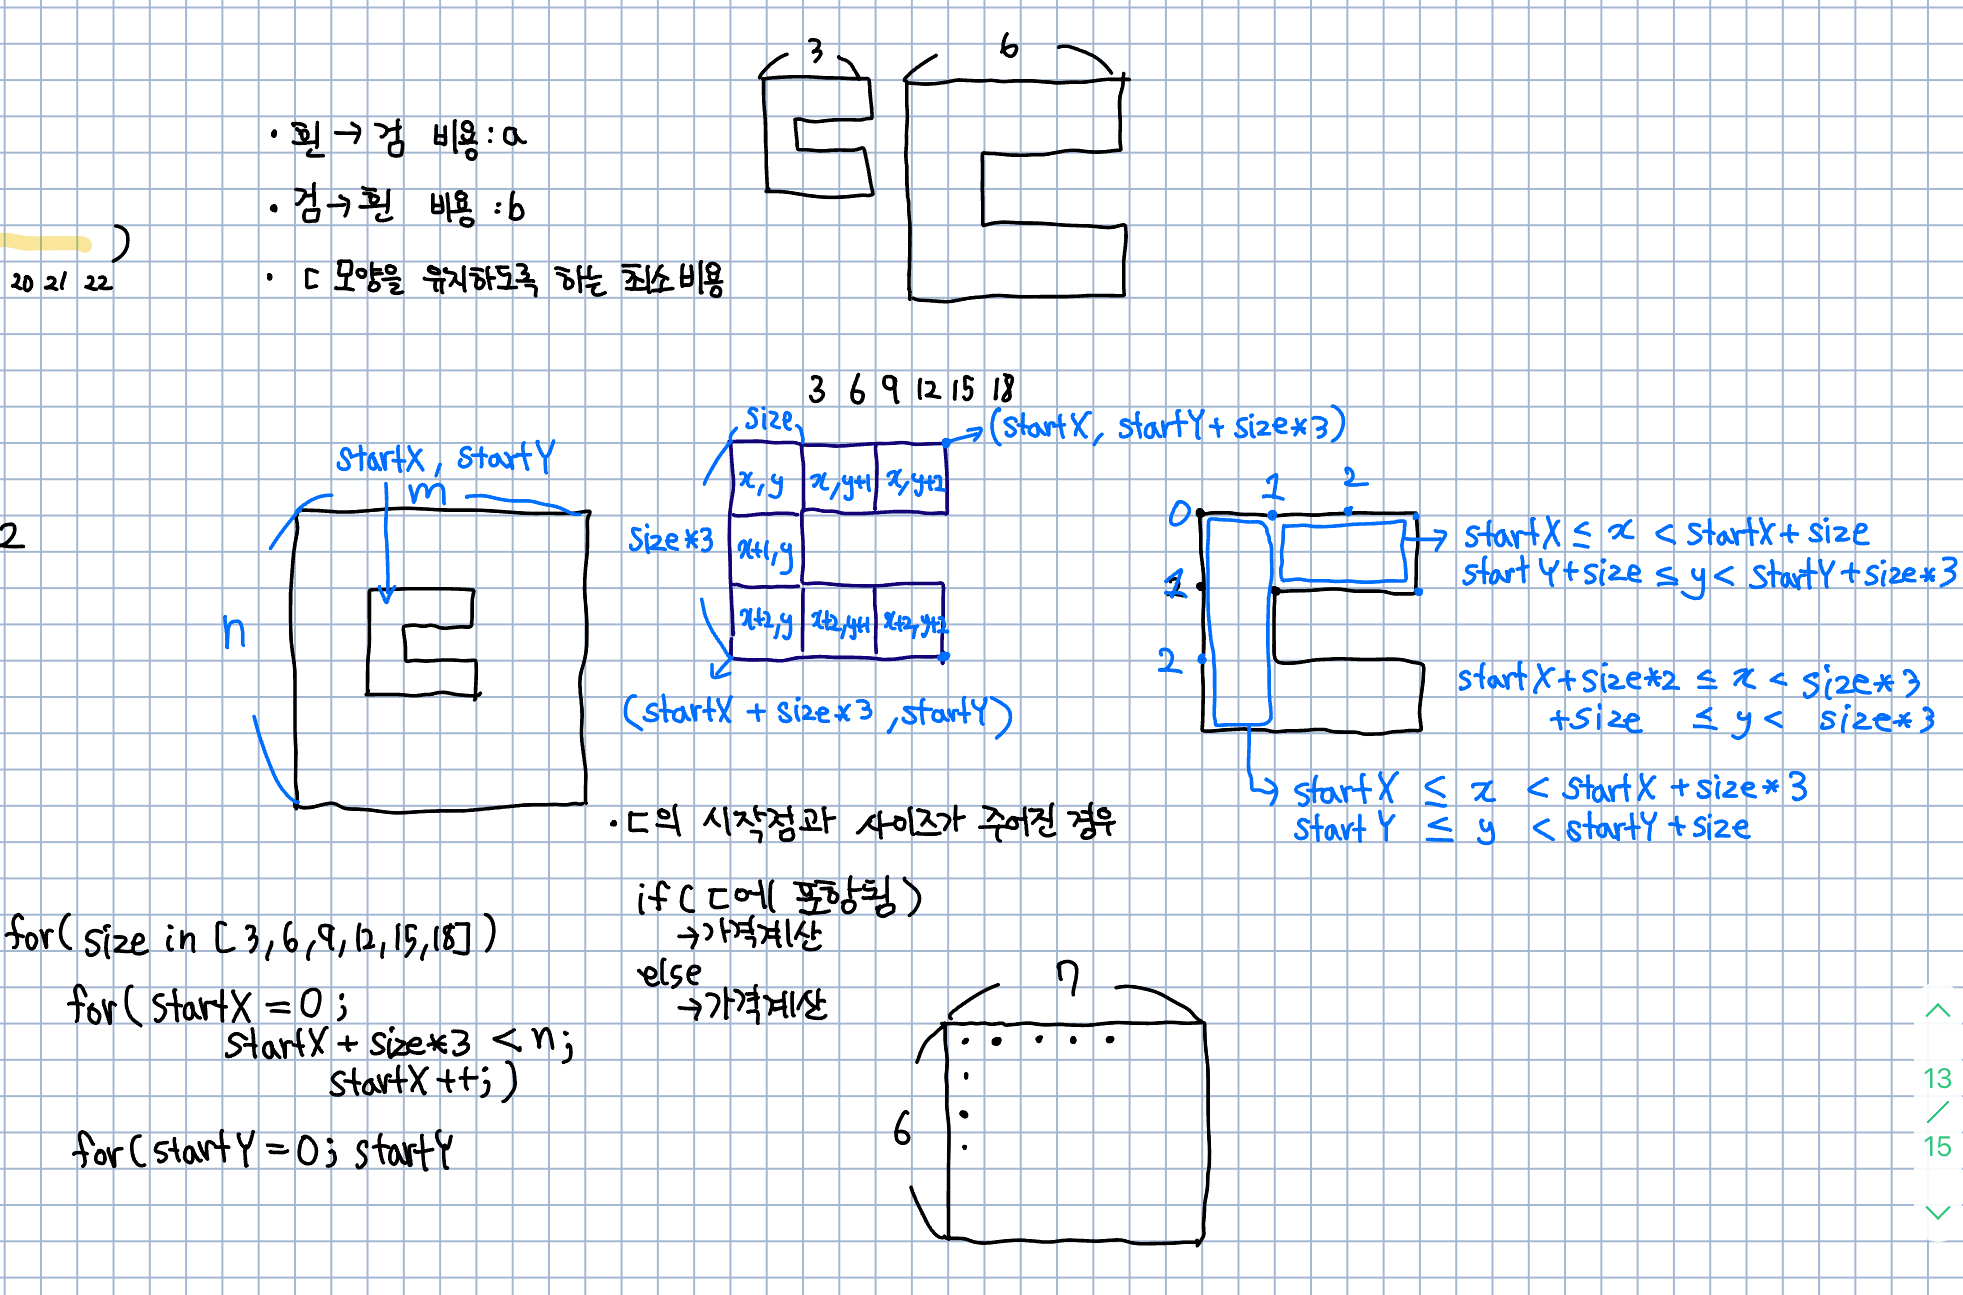 3
6
· 흰 → 검 비용 : a
· 검 → 흰 비용 : b
)
20 21 22
· ㄷ 모양을 유지하도록 하는 최소비용
3 6 9 12 15 18
size
(startX, startY + size*3)
startX, startY
m
x,y x,y+1 x,y+2
size*3
x+1,y
x+2,y x+2,y+1 x+2,y+2
(startX + size*3, startY)
2
n
0 1 2
1
2
startX ≤ x < startX + size
startY+size ≤ y < startY+size*3
startX+size*2 ≤ x < size*3
+size ≤ y < size*3
startX ≤ x < startX + size*3
startY ≤ y < startY + size
· ㄷ의 시작점과 사이즈가 주어진 경우
if( ㄷ에 포함됨 )
→ 가격계산
else
→ 가격계산
for( size in [ 3, 6, 9, 12, 15, 18] )
for( startX = 0 ;
startX + size*3 < n;
startX ++; )
for( startY = 0; startY
7
6
13
/
15